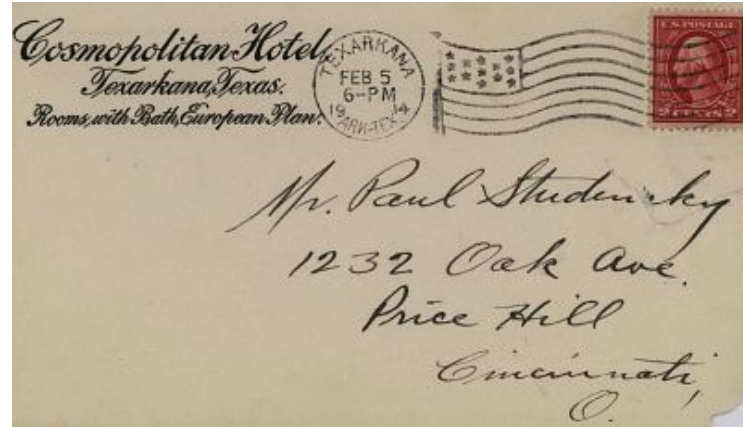 Cosmopolitan Hotel
Texarkana, Texas.
Rooms, with Bath, European Plan.
TEXARKANA
FEB 5
6-PM
1914
ARK-TEX
U.S. POSTAGE
2 CENTS 2
Mr. Paul Studensky
1232 Oak Ave.
Price Hill
Cincinnati,
O.